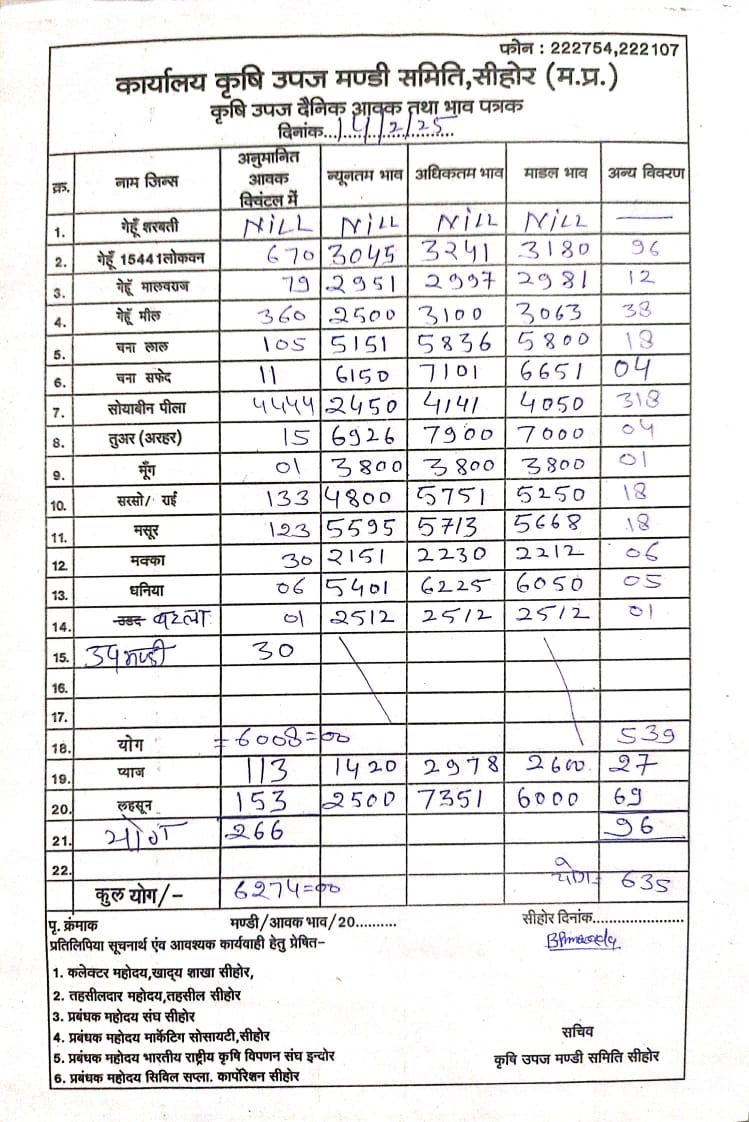 फोन : 222754,222107
कार्यालय कृषि उपज मण्डी समिति,सीहोर (म.प्र.)
कृषि उपज दैनिक आवक तथा भाव पत्रक
दिनांक...14/2/25...
क्र. नाम जिन्स अनुमानित आवक क्विंटल में न्यूनतम भाव अधिकतम भाव माडल भाव अन्य विवरण
1. गेहूँ शरबती NILL NILL NILL NILL —
2. गेहूँ 15441लोकवन 670 3045 3241 3180 96
3. गेहूँ मालवराज 79 2951 2997 2981 12
4. गेहूँ मील 360 2500 3100 3063 38
5. चना लाल 105 5151 5836 5800 18
6. चना सफेद 11 6150 7101 6651 04
7. सोयाबीन पीला 4444 2450 4141 4050 318
8. तुअर (अरहर) 15 6926 7900 7000 04
9. मूँग 01 3800 3800 3800 01
10. सरसो/ राई 133 4800 5751 5250 18
11. मसूर 123 5595 5713 5668 18
12. मक्का 30 2151 2230 2212 06
13. धनिया 06 5401 6225 6050 05
14. उडद बटला 01 2512 2512 2512 01
15. उपमण्डी 30
16.
17.
18. योग =6008=00 539
19. प्याज 113 1420 2978 2600 27
20. लहसून 153 2500 7351 6000 69
21. योग 266 96
22.
कुल योग/- 6274=00 योग= 635
पृ. क्रंमाक मण्डी/आवक भाव/20.......... सीहोर दिनांक......................
प्रतिलिपिया सूचनार्थ एंव आवश्यक कार्यवाही हेतु प्रेषित–
1. कलेक्टर महोदय,खाद्य शाखा सीहोर,
2. तहसीलदार महोदय,तहसील सीहोर
3. प्रबंधक महोदय संघ सीहोर
4. प्रबंधक महोदय मार्केटिग सोसायटी,सीहोर
5. प्रबंधक महोदय भारतीय राष्ट्रीय कृषि विपणन संघ इन्दोर
6. प्रबंधक महोदय सिविल सप्ला. कार्पोरेशन सीहोर
सचिव
कृषि उपज मण्डी समिति सीहोर